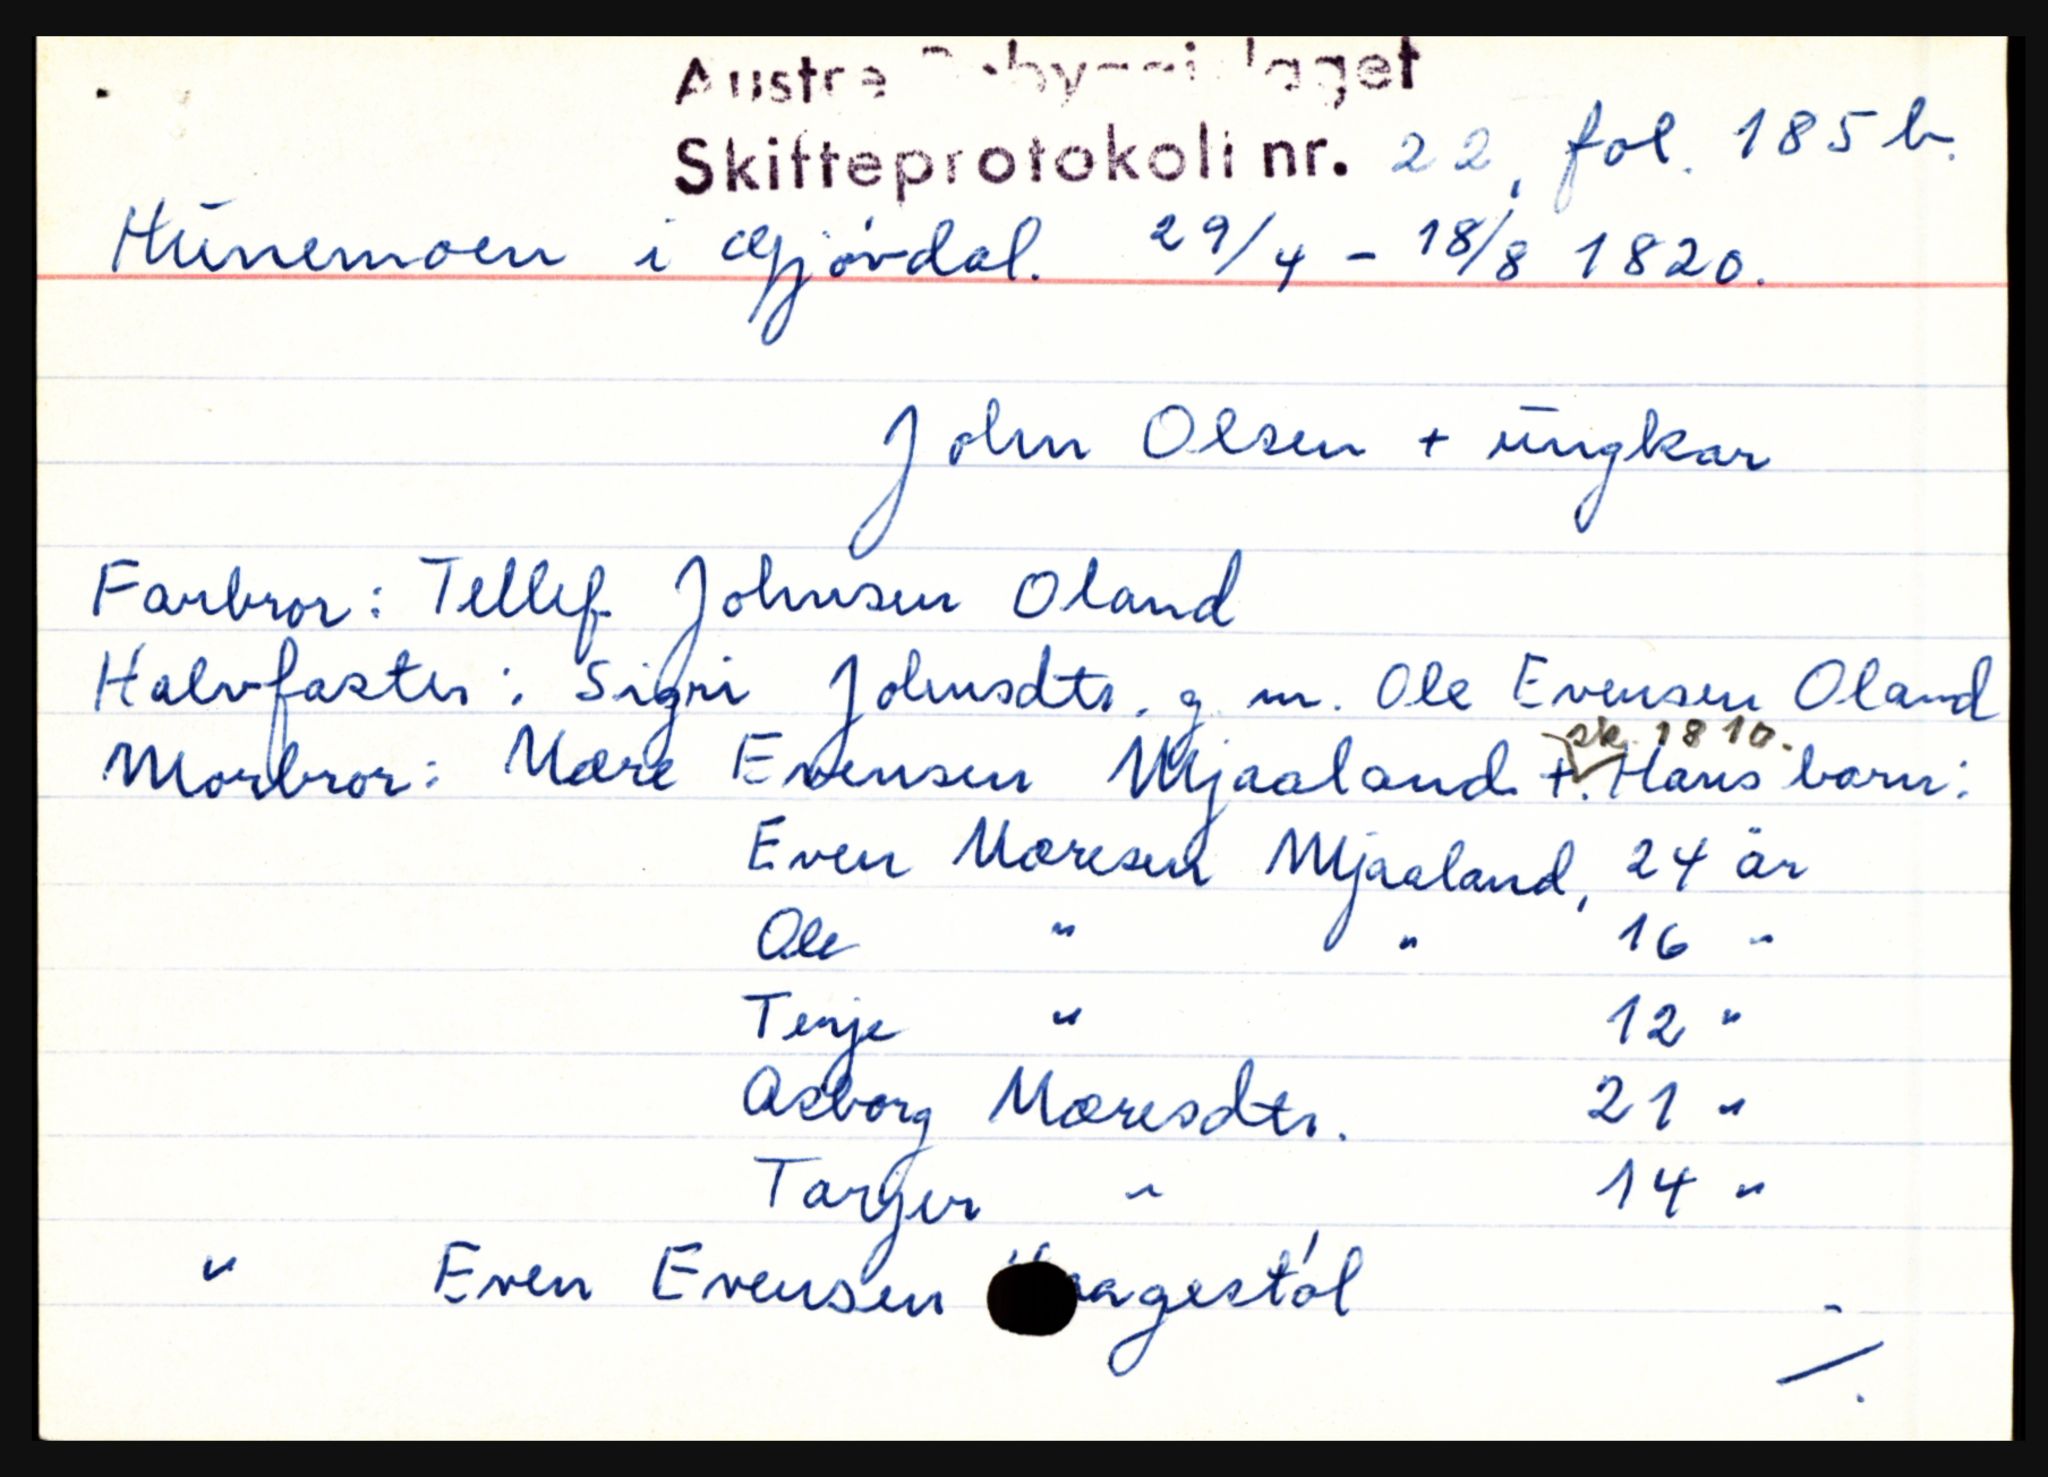 Austre laget
Skifteprotokoll nr. 22, fol. 185 b.
Hunemoen i Gjövdal. 29/4 - 18/8 1820.
John Olsen + ungkar
Farbror: Tellef Johnsen Oland
Halvfaster: Sigri Johnsdtr. g. m. Ole Evensen Oland
sk. 1810.
Morbror: Mære Evensen Mjaaland +. Hans barn:
Even Mæresen Mjaaland, 24 år
Ole " " 16 "
Terje " 12 "
Asborg Mæresdtr. 21 "
Tarjer " 14 "
" Even Evensen